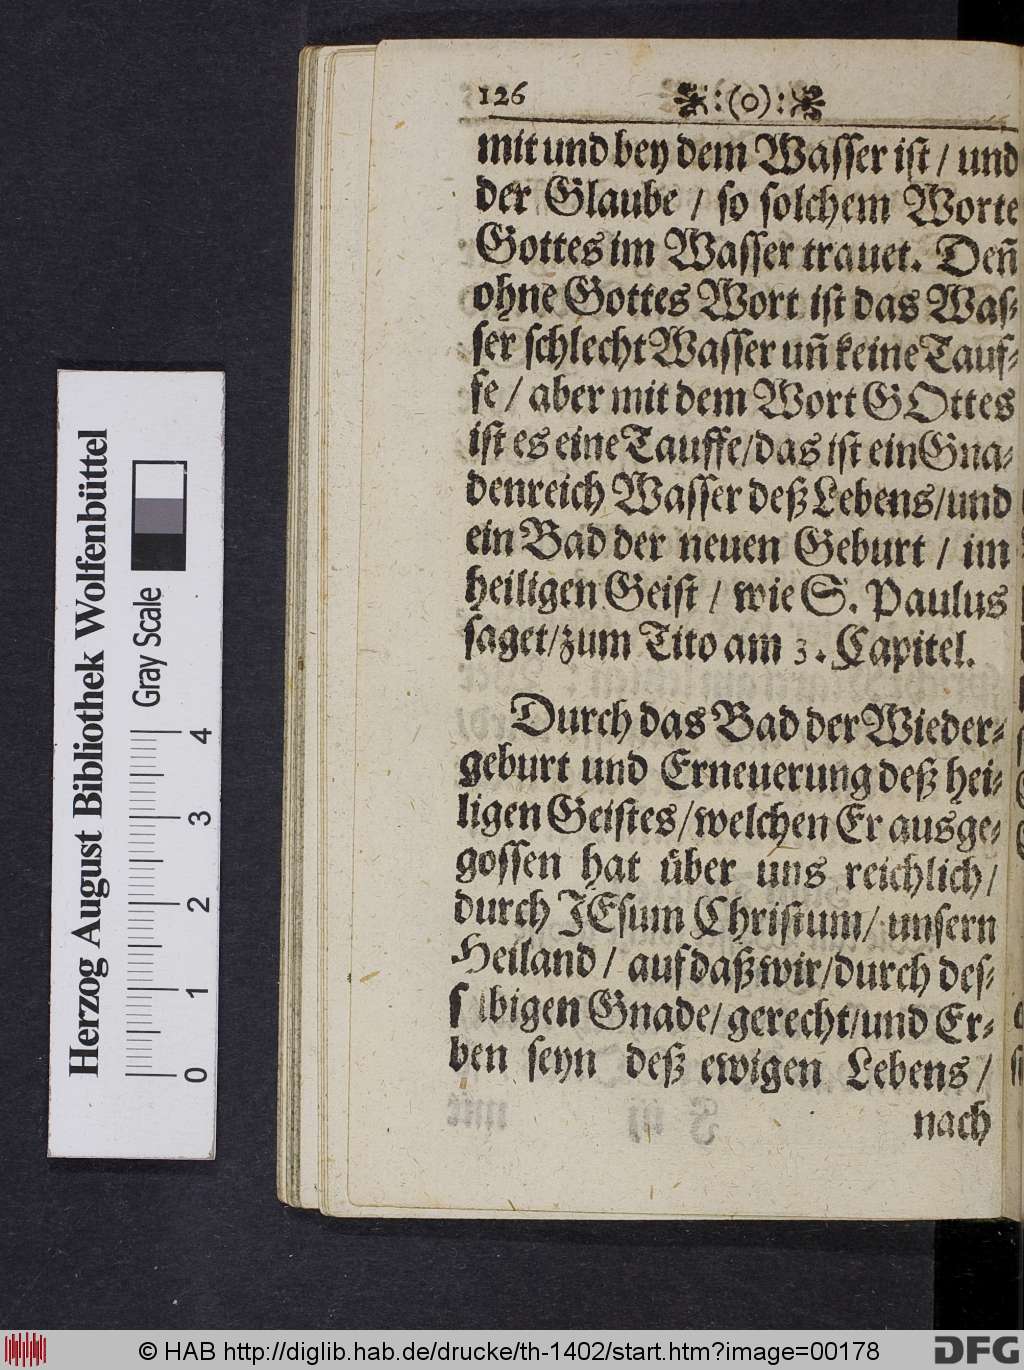 126 :(o):
mit und bey dem Wasser ist / und
der Glaube / so solchem Worte
Gottes im Wasser trauet. Deñ
ohne Gottes Wort ist das Was-
ser schlecht Wasser uñ keine Tauf-
fe / aber mit dem Wort GOttes
ist es eine Tauffe/das ist ein Gna-
denreich Wasser deß Lebens/und
ein Bad der neuen Geburt / im
heiligen Geist / wie S. Paulus
saget/zum Tito am 3. Capitel.
Durch das Bad der Wieder-
geburt und Erneuerung deß hei-
ligen Geistes/welchen Er ausge-
gossen hat über uns reichlich/
durch JEsum Christum/ unsern
Heiland / auf daß wir/durch des-
s lbigen Gnade/ gerecht/und Er-
ben seyn deß ewigen Lebens /
nach
Herzog August Bibliothek Wolfenbüttel
Gray Scale
0 1 2 3 4
© HAB http://diglib.hab.de/drucke/th-1402/start.htm?image=00178
DFG